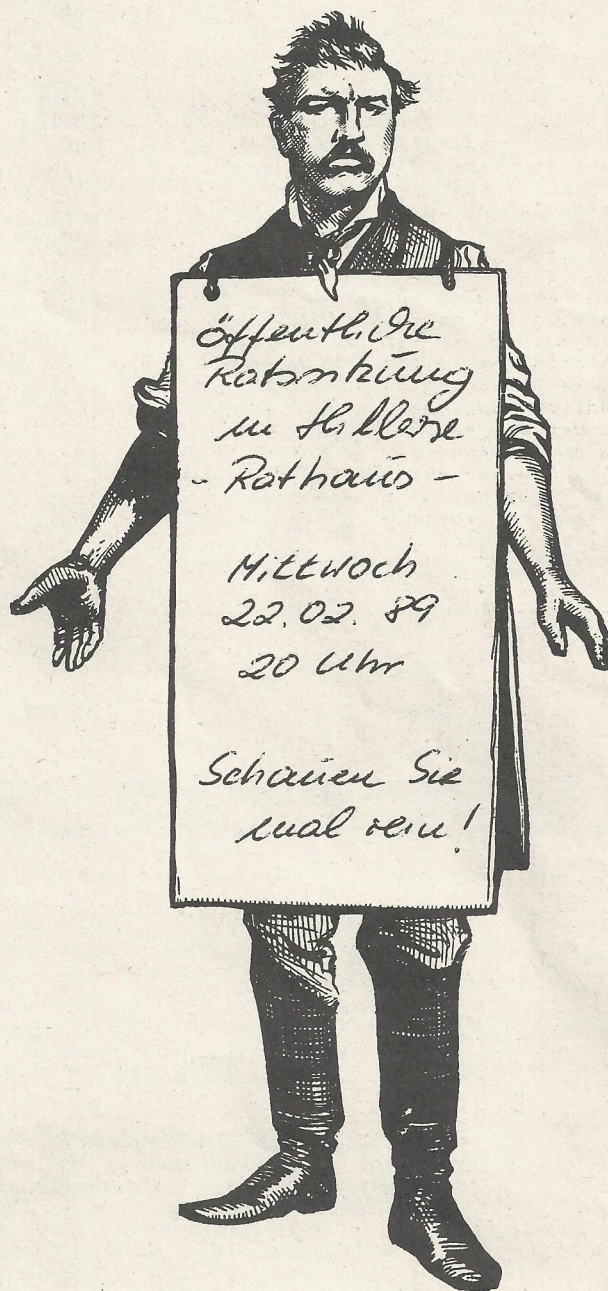 öffentliche
Ratssitzung
in Hillerse
- Rathaus -
Mittwoch
22.02.89
20 Uhr
Schauen Sie
mal rein!